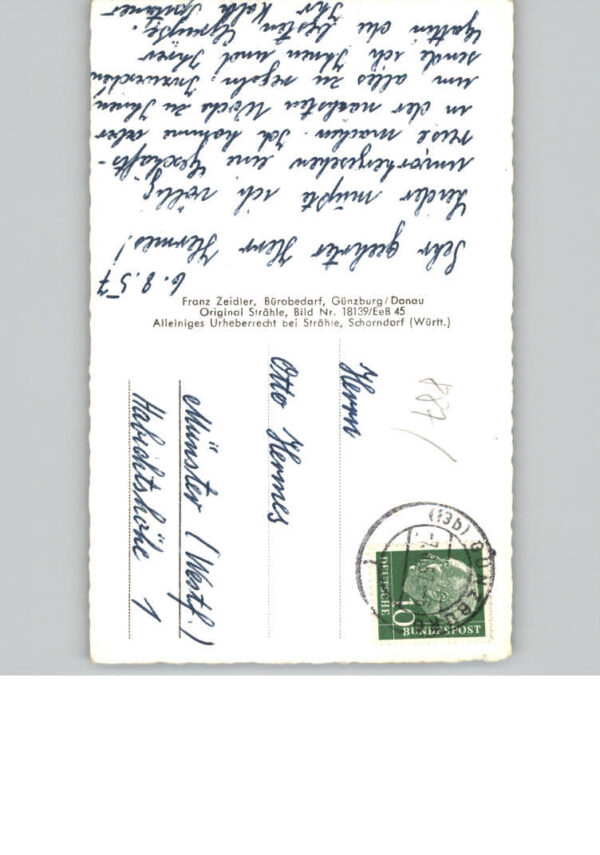 6. 8. 57
Sehr geehrter Herr Hermes!
Leider mußte ich völlig
unvorhergesehen eine Geschäfts-
reise machen. Ich komme aber
in der nächsten Woche zu Ihnen
um alles zu regeln. Inzwischen
sende ich Ihnen und Ihrer
Gattin die besten Grüße.
Ihr
Franz Zeidler, Bürobedarf, Günzburg/Donau
Original Strähle, Bild Nr. 18139/EeB 45
Alleiniges Urheberrecht bei Strähle, Schorndorf (Württ.)
887
Herrn
Otto Hermes
Münster (Westf.)
Habichtshöhe 1
(13b) GÜNZBURG
10
DEUTSCHE
BUNDESPOST